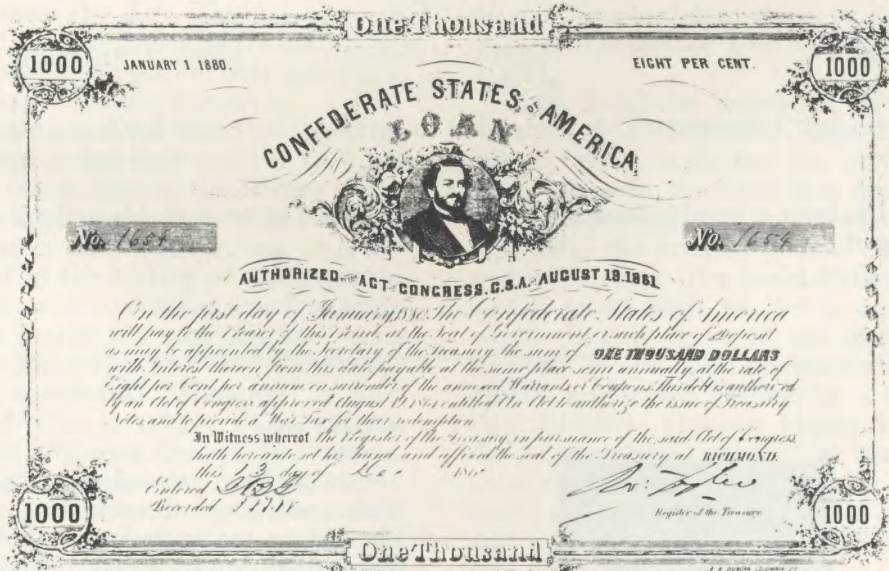 One Thousand
1000 JANUARY 1 1880. EIGHT PER CENT. 1000
CONFEDERATE STATES OF AMERICA
LOAN
No. 1654 No. 1654
AUTHORIZED BY THE ACT OF CONGRESS, C.S.A. OF AUGUST 19.1861
On the first day of January, 1880, The Confederate States of America
will pay to the Bearer of this Bond, at the Seat of Government or such place of Deposit
as may be appointed by the Secretary of the Treasury, the sum of ONE THOUSAND DOLLARS
with Interest thereon from this date, payable at the same place semi annually, at the rate of
Eight per Cent per annum on surrender of the annexed Warrants or Coupons. This debt is authorized
by an Act of Congress approved August 19, 1861, entitled An Act to authorize the issue of Treasury
Notes, and to provide a War Tax for their redemption
In Witness whereof the Register of the Treasury in pursuance of the said Act of Congress,
hath hereunto set his hand and affixed the seal of the Treasury at RICHMOND.
this 13 day of Dec.
Entered
Recorded
Register of the Treasury.
1000 1000
One Thousand